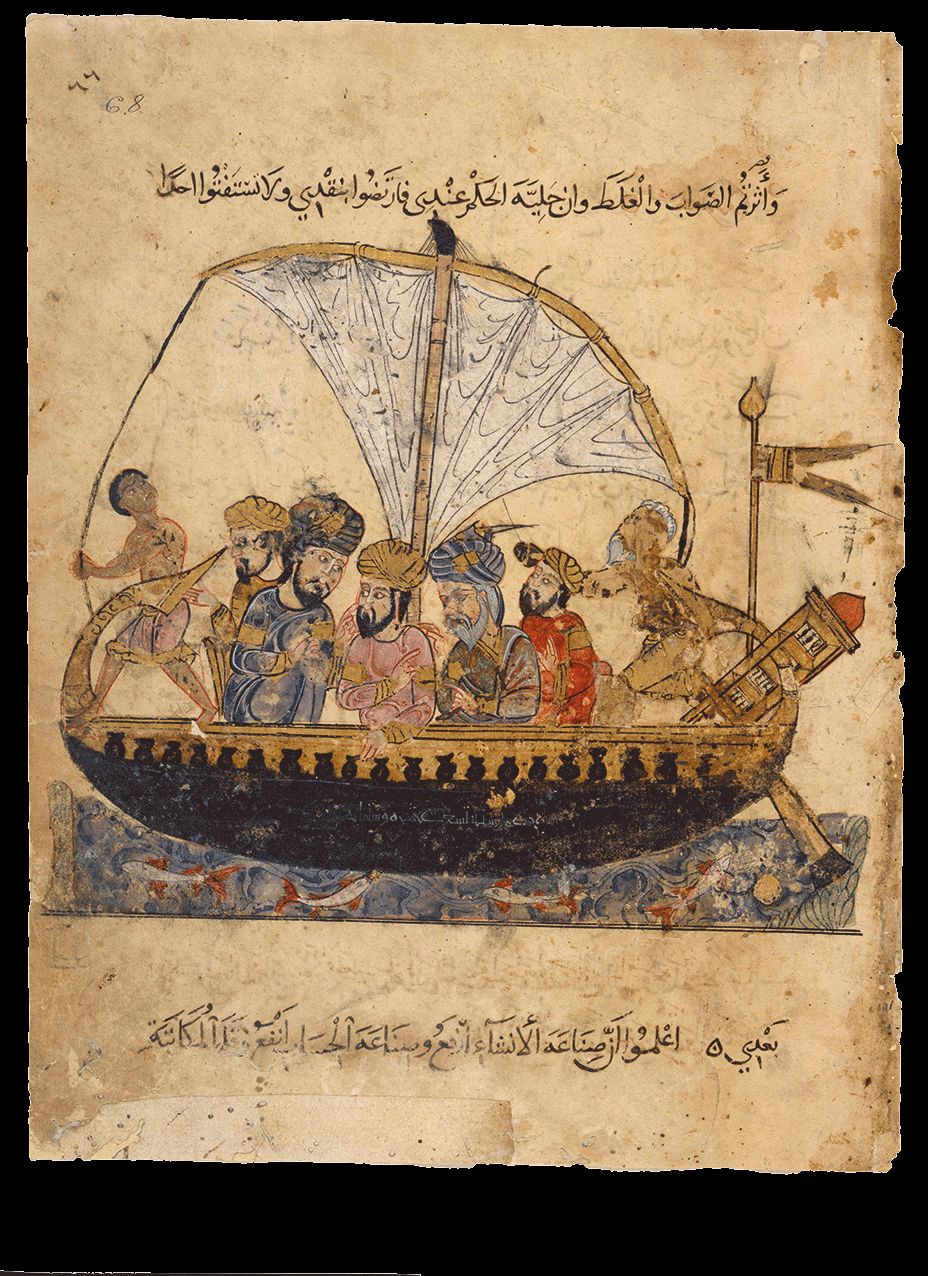 68
وَأَثَرْتُمُ الصَّوَابَ والْغَلَطَ وان جَلِيَّةَ الحَكْم عنْدِى فارتَضُوا بنَقْدِي ولا تستَفْتُوا احدًا
بَعْدِي ٥ اعْلموُا اَنَّ صِنَاعَةَ الأنشَآءِ ارْفَعُ وصِنَاعَةَ الحِسَابِ اَنْفَعُ وقَلَمَ المُكَاتَبَةِ